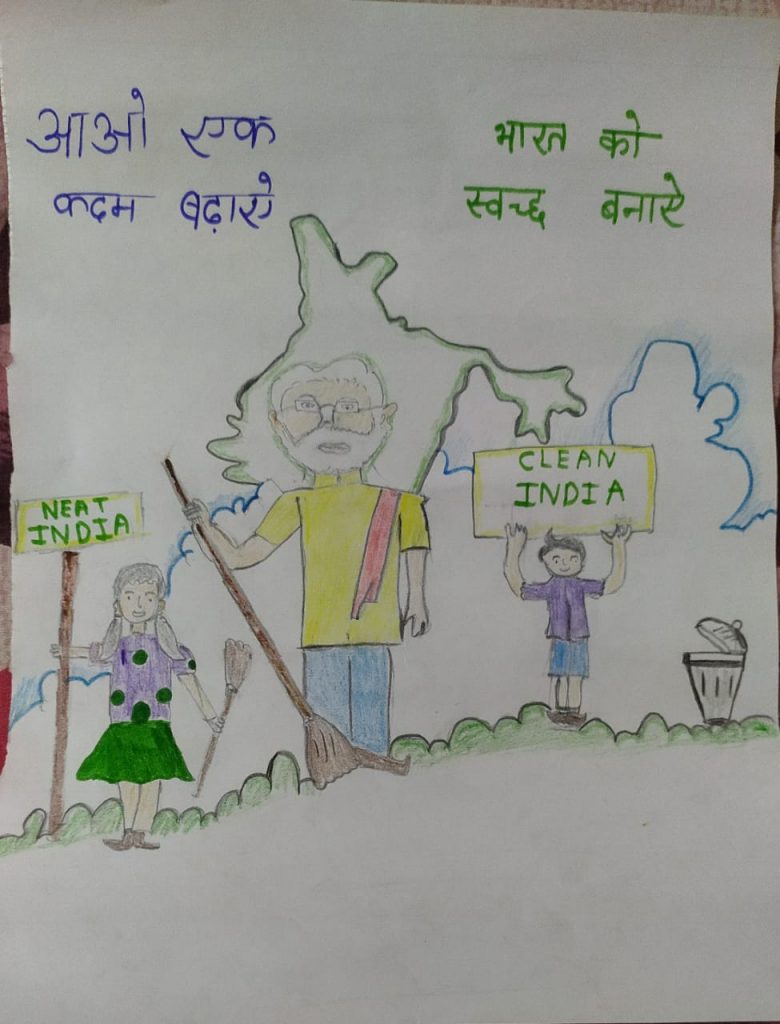 आओ एक
कदम बढ़ाऐ
भारत को
स्वच्छ बनाऐ
CLEAN
INDIA
NEAT
INDIA